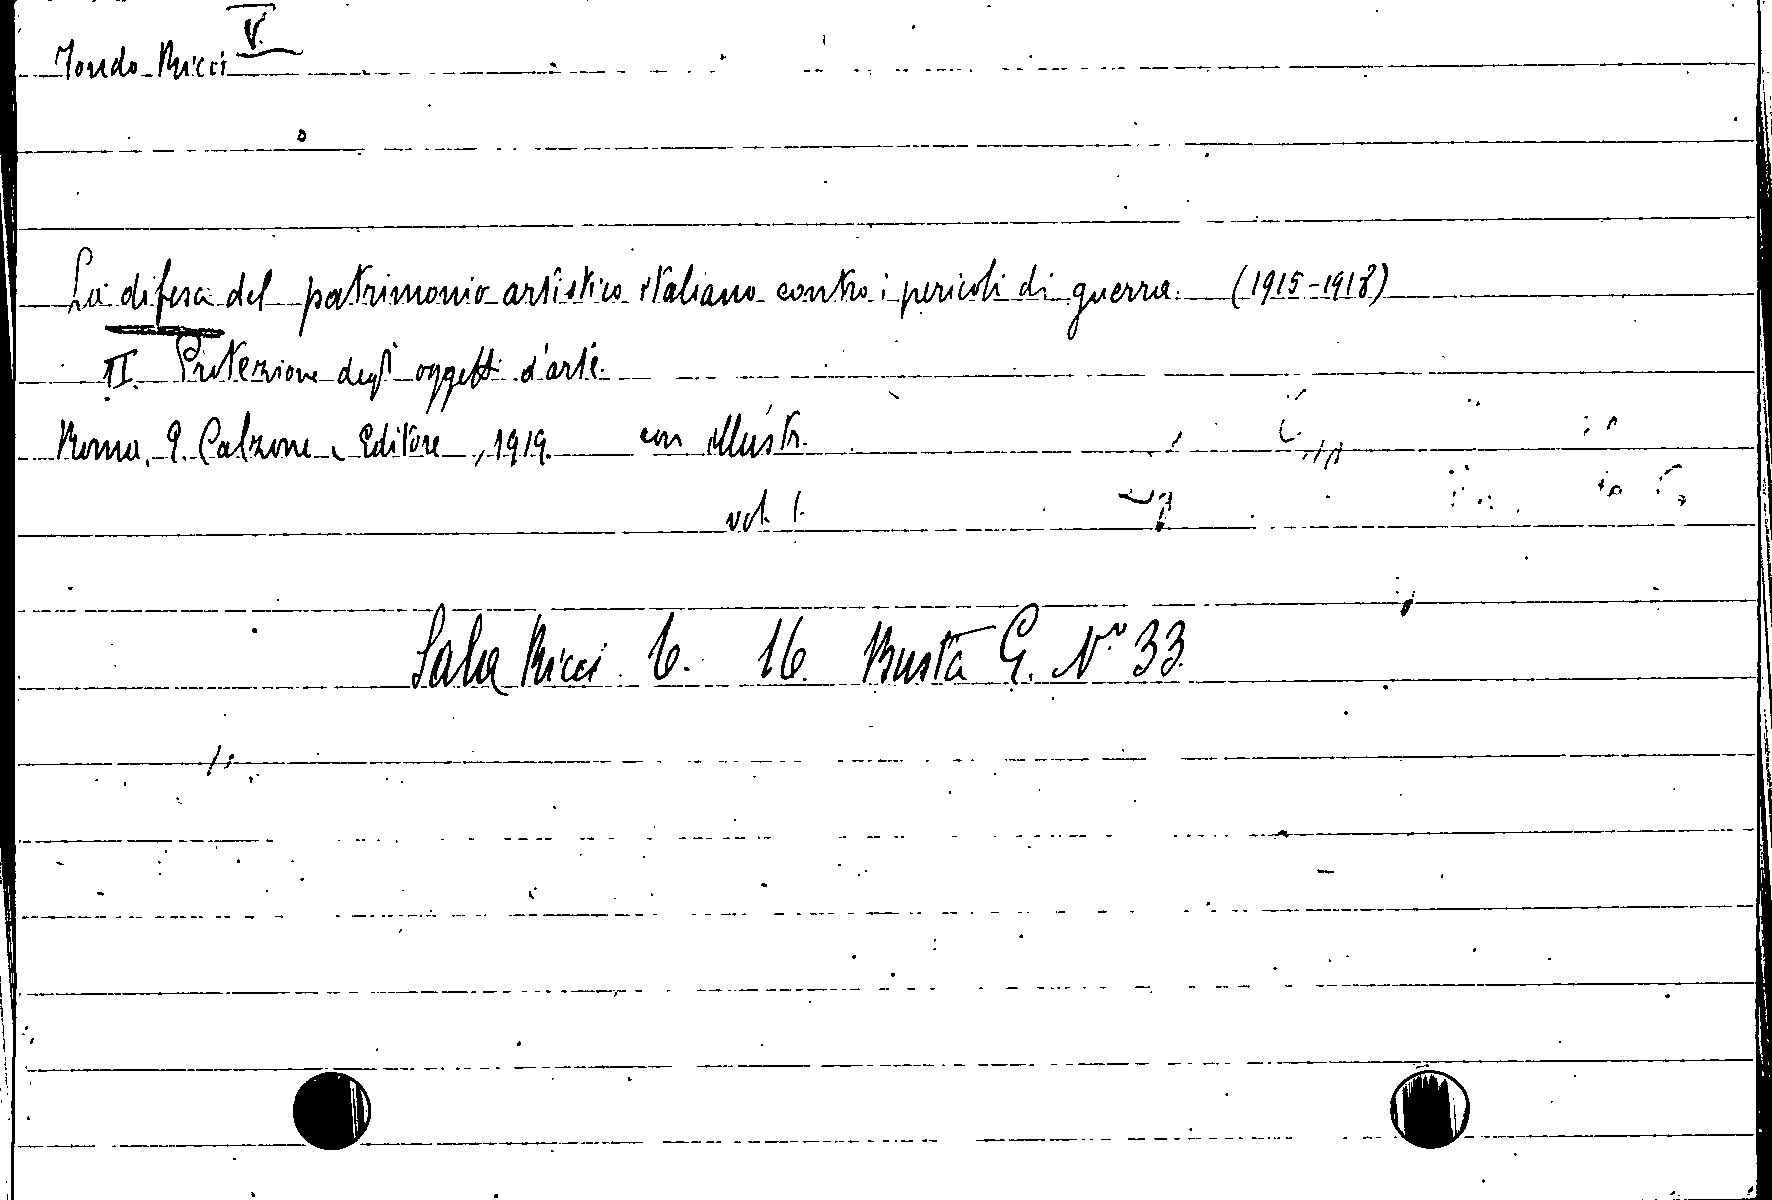 Fondo Ricci V.
La difesa del patrimonio artistico italiano contro i pericoli di guerra. (1915-1918)
II. Protezione degli oggetti d'arte.
Roma, E. Calzone, Editore, 1919. con illustr.
vol. 1.
Sala Ricci 6. 16 Busta G. N.º 33.